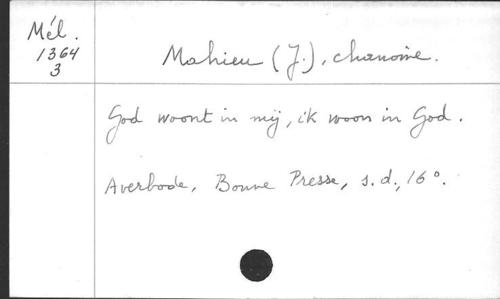 Mél.
1364
3
Mahieu (J.), chanoine.
God woont in mij, ik woon in God.
Averbode, Bonne Presse, s.d., 16°.